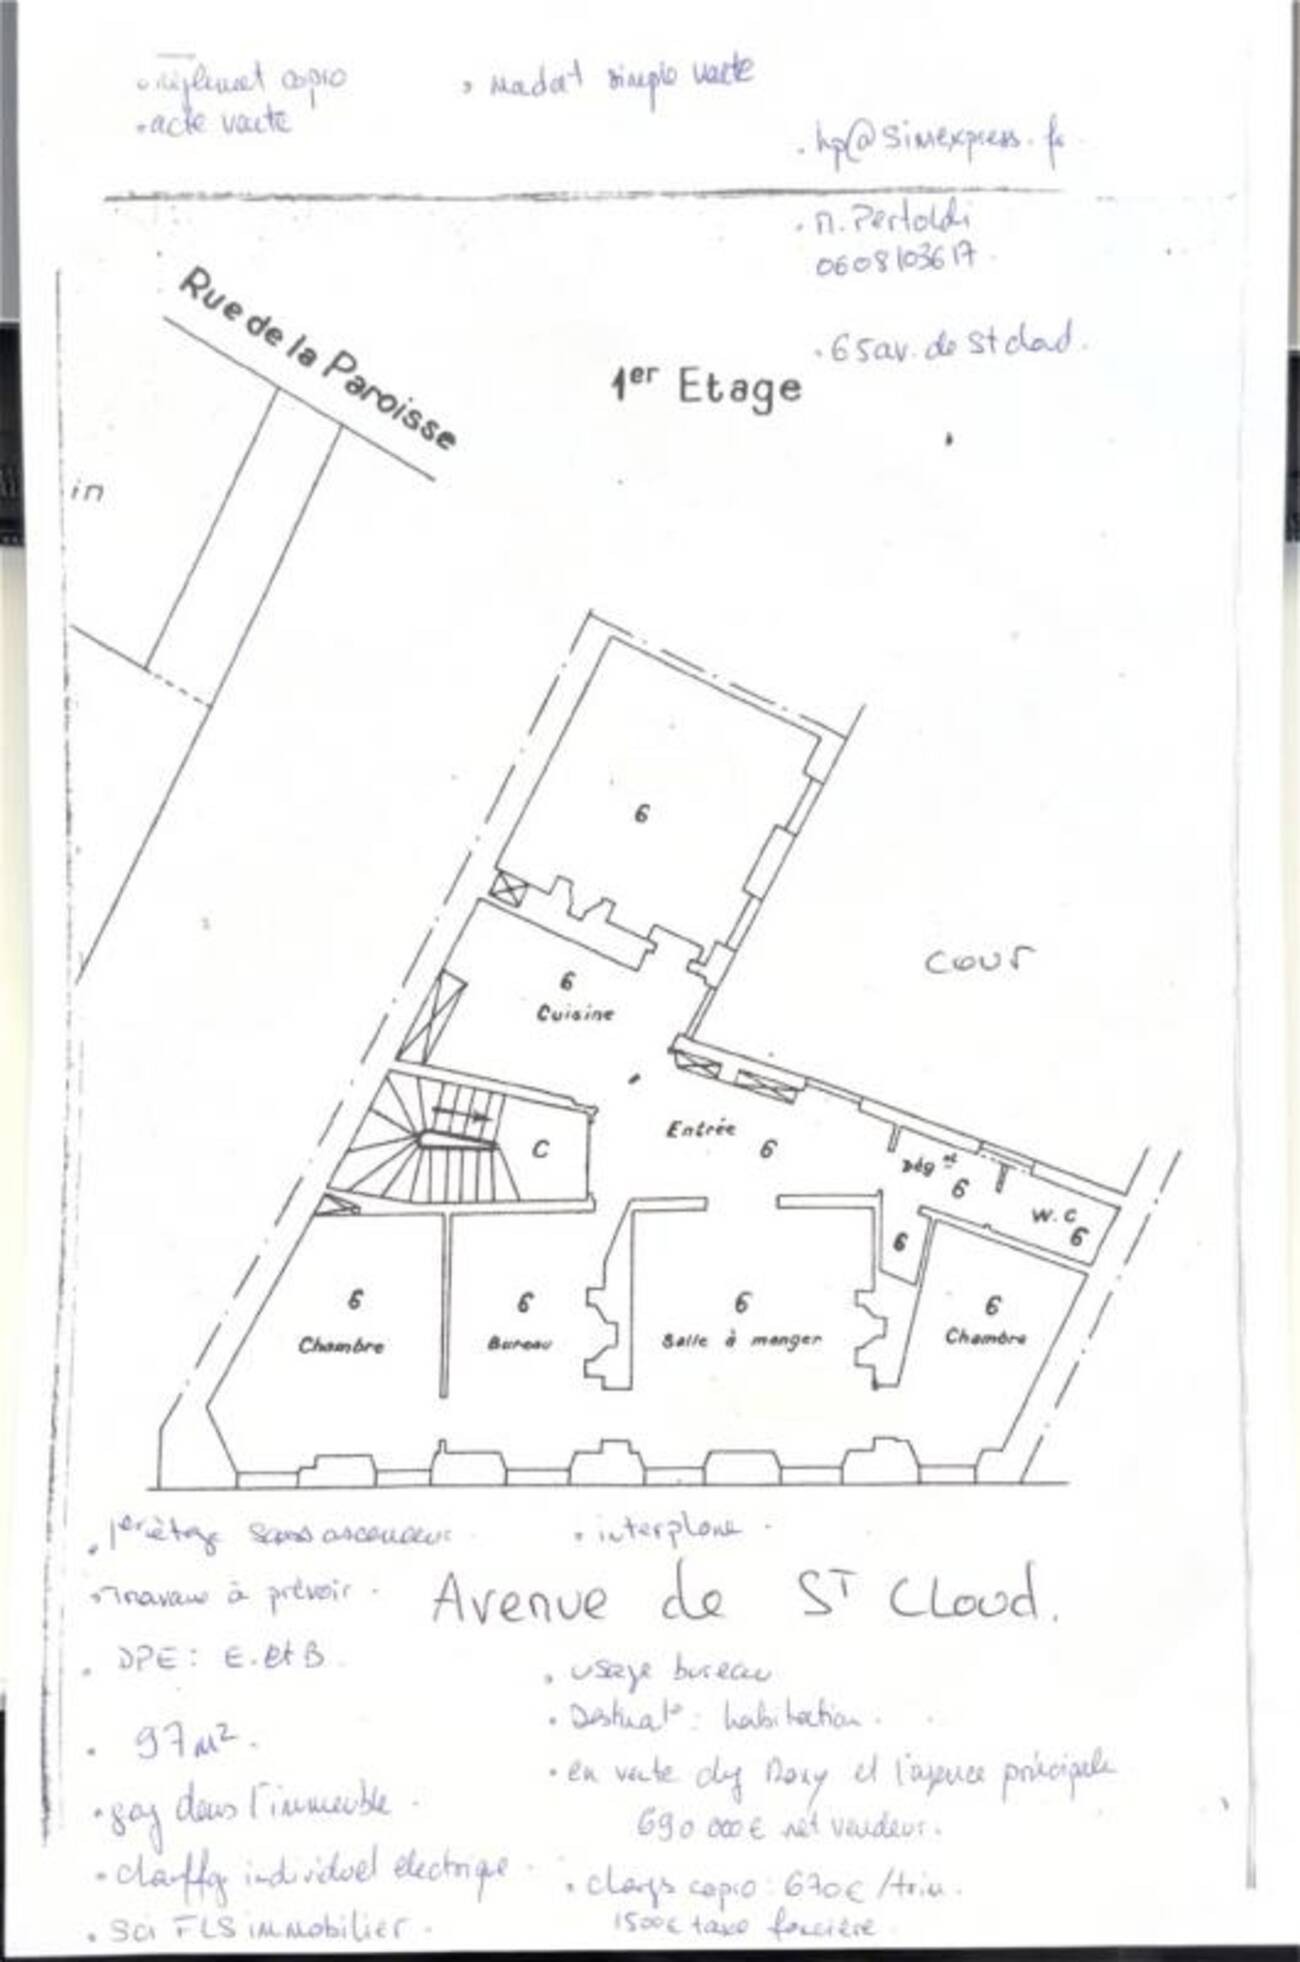 • règlement copro
• acte vente
• Madat simple vente
• hp@simexpress.fr
• M. Pertoldi
0608103617
• 65 av. de St cloud.
Rue de la Paroisse
1er Etage
in
6
cour
6
Cuisine
Entrée 6
C
Dégt 6
W.C 6
6
6
Chambre
6
Bureau
6
Salle à manger
6
Chambre
• 1er étage sans ascenseur
• interphone
• Travaux à prévoir.
Avenue de ST CLOUD.
• DPE : E. et B
• 97 m².
• gaz dans l'immeuble.
• chauffg individuel électrique
• Sci FLS immobilier.
• usage bureau
• Destinat° : habitation.
• en vente chez Roxy et l'agence principale
690 000 € net vendeur.
• charges copro : 670 € / trim.
1500 € taxe foncière